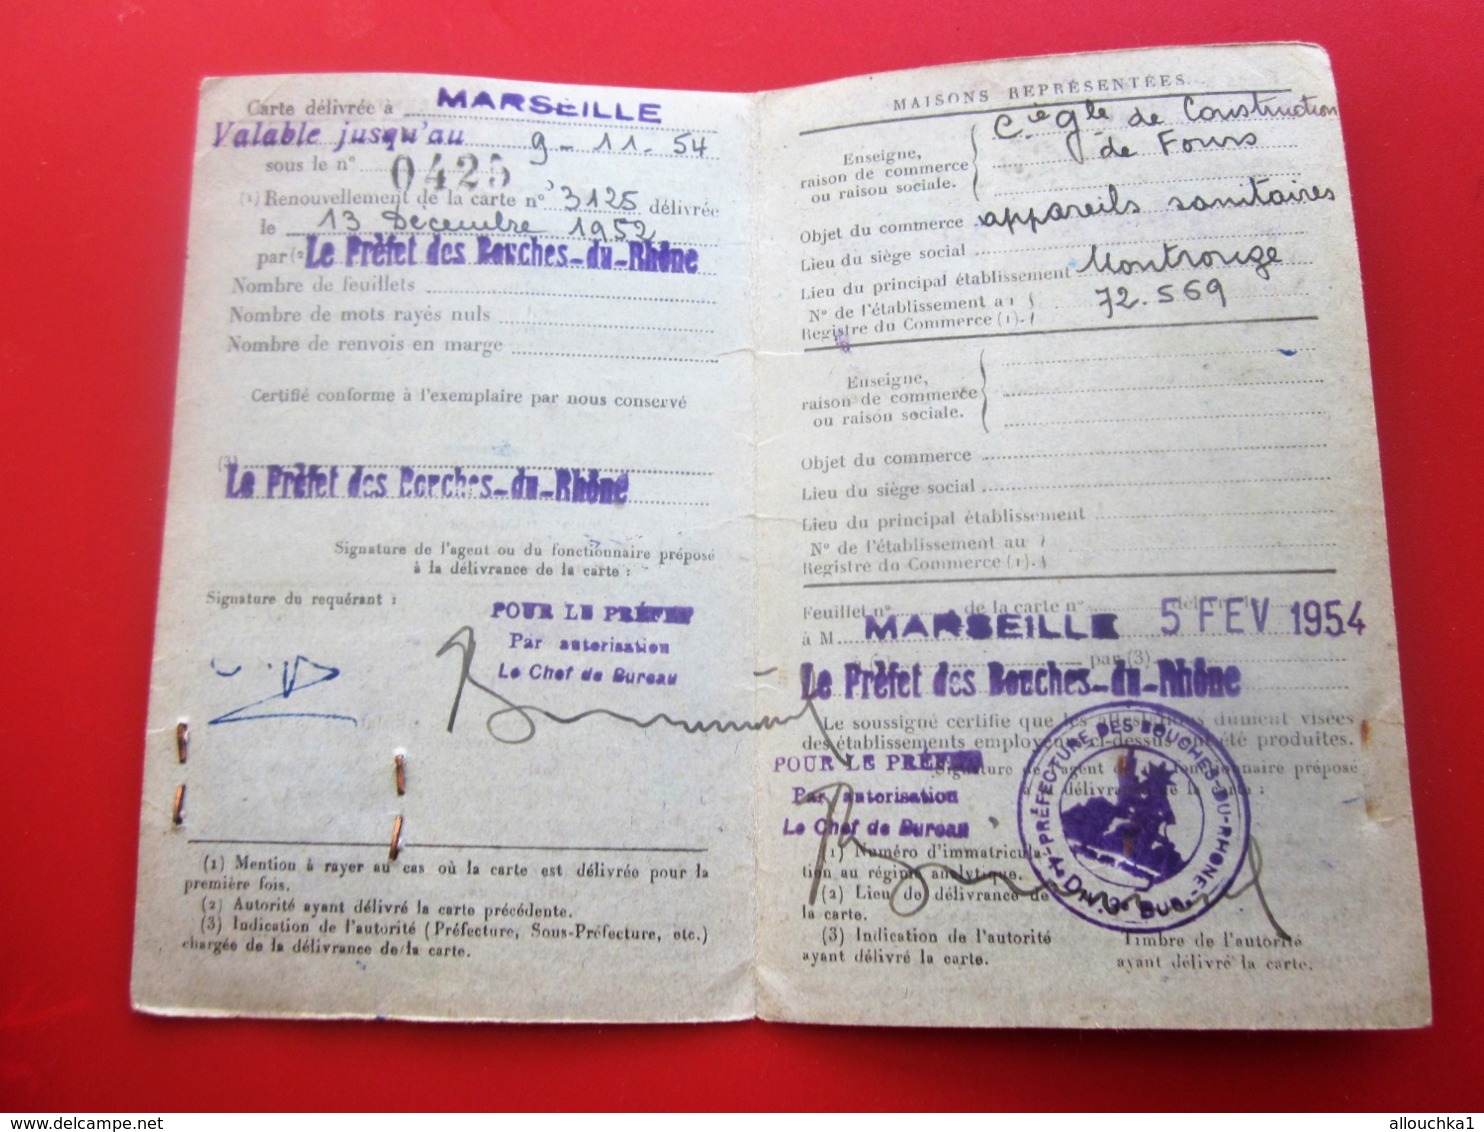 Carte délivrée à MARSEILLE
Valable jusqu'au 9-11-54
sous le n° 0425
(1) Renouvellement de la carte n° 3125 délivrée
le 13 Décembre 1952
par (2 Le Préfet des Bouches-du-Rhône
Nombre de feuillets
Nombre de mots rayés nuls
Nombre de renvois en marge
Certifié conforme à l'exemplaire par nous conservé
(3)
Le Préfet des Bouches-du-Rhône
Signature de l'agent ou du fonctionnaire préposé
à la délivrance de la carte :
Signature du requérant :
POUR LE PRÉFET
Par autorisation
Le Chef de Bureau
(1) Mention à rayer au cas où la carte est délivrée pour la
première fois.
(2) Autorité ayant délivré la carte précédente.
(3) Indication de l'autorité (Préfecture, Sous-Préfecture, etc.)
chargée de la délivrance de la carte.
MAISONS REPRÉSENTÉES
Enseigne,
raison de commerce
ou raison sociale.
Cie gle de Construction
de Fours
Objet du commerce appareils sanitaires
Lieu du siège social
Lieu du principal établissement Montrouge
N° de l'établissement au
Registre du Commerce (1). 72.569
Enseigne,
raison de commerce
ou raison sociale.
Objet du commerce
Lieu du siège social
Lieu du principal établissement
N° de l'établissement au
Registre du Commerce (1).
Feuillet n° de la carte n°
à M MARSEILLE 5 FEV 1954
par (3)
Le Préfet des Bouches-du-Rhône
Le soussigné certifie que les attestations dument visées
des établissements employeurs ci-dessus ont été produites.
Signature de l'agent ou du fonctionnaire préposé
à la délivrance de la carte :
POUR LE PRÉFET
Par autorisation
Le Chef de Bureau
PRÉFECTURE DES BOUCHES-DU-RHONE
(1) Numéro d'immatricula-
tion au régime analytique.
(2) Lieu de délivrance de
la carte.
(3) Indication de l'autorité
ayant délivré la carte.
Timbre de l'autorité
ayant délivré la carte.
© DELCAMPE.NET
allouchka1